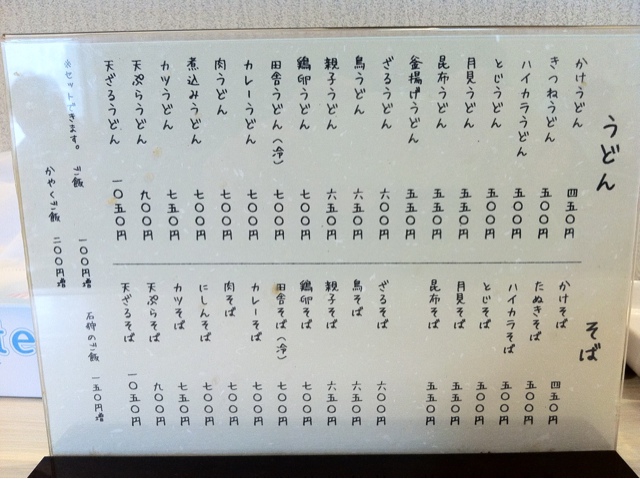 うどん
かけうどん 四五〇円
きつねうどん 五〇〇円
ハイカラうどん 五〇〇円
とじうどん 五〇〇円
月見うどん 五五〇円
昆布うどん 五五〇円
釜揚げうどん 五五〇円
ざるうどん 六〇〇円
鳥うどん 六五〇円
親子うどん 六五〇円
鶏卵うどん 七〇〇円
田舎うどん(冷) 七〇〇円
カレーうどん 七〇〇円
肉うどん 七〇〇円
煮込みうどん 七〇〇円
カツうどん 七五〇円
天ぷらうどん 九〇〇円
天ざるうどん 一〇五〇円
そば
かけそば 四五〇円
たぬきそば 五〇〇円
ハイカラそば 五〇〇円
とじそば 五〇〇円
月見そば 五五〇円
昆布そば 五五〇円
ざるそば 六〇〇円
鳥そば 六五〇円
親子そば 六五〇円
鶏卵そば 七〇〇円
田舎そば(冷) 七〇〇円
カレーそば 七〇〇円
肉そば 七〇〇円
にしんそば 七〇〇円
カツそば 七五〇円
天ぷらそば 九〇〇円
天ざるそば 一〇五〇円
セットできます。 デ飯 一〇〇円増
かやくデ飯 二〇〇円増
デ飯 一五〇円増
te